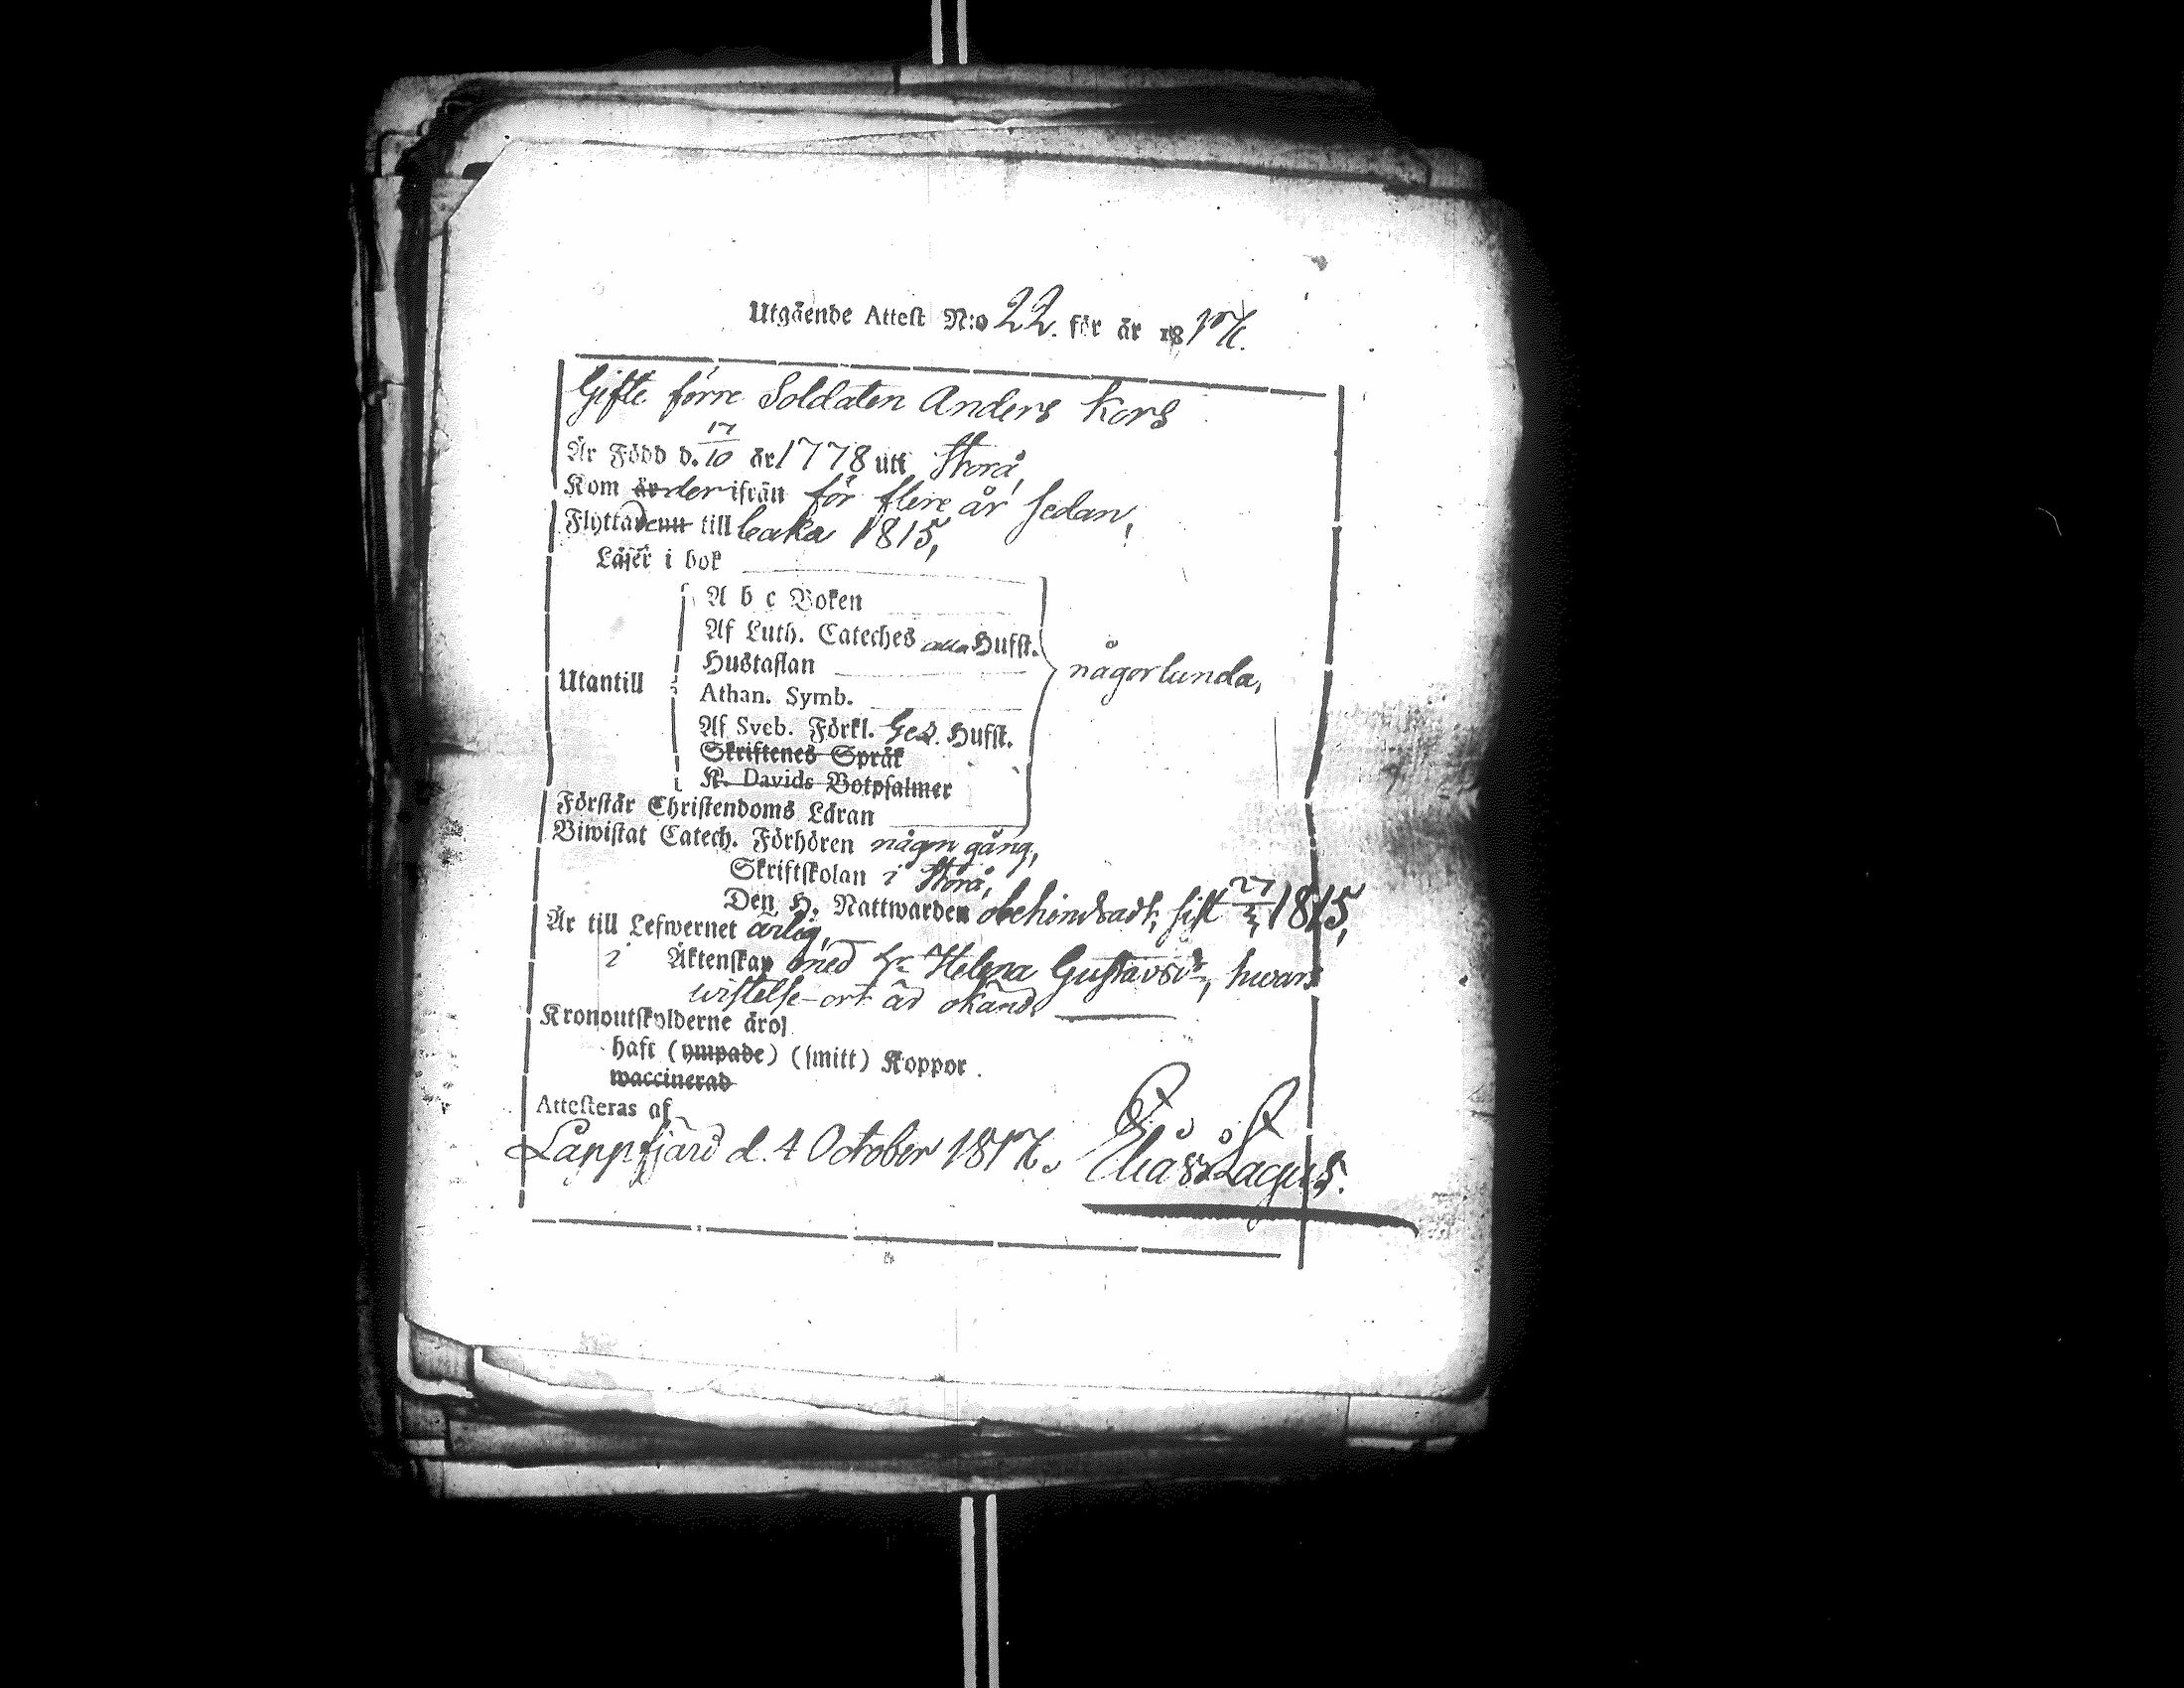 Utgående Attest N:o 22. för år 1817.
Gifte förre Soldaten Anders Kors
Är Född d. 17/10 år 1778 uti Storå,
Kom år der ifrån för flere år sedan,
Flyttade nu till 1815,
Läser i bok
A b c Boken
Af Luth. Cateches alla Hufst.
Hustaflan
någorlunda,
Utantill
Athan. Symb.
Af Sveb. Förkl. 6 e d. Hufst.
Skriftenes Språk
K. Davids Botpsalmer
Förstår Christendoms Läran
Biwistat Catech. Förhören någon gång,
Skriftskolan i Storå,
Den H. Nattwarden obehindradt, sist 27/3 1815,
Är till Lefwernet ärlig,
i Äktenskap med Helena Gustavsdr, hwars
wistelse-ort är okänd.
Kronoutskylderne äro
haft (ympade) (smitt) Koppor.
waccinerad
Attesteras af
Lappfjärd d. 4 October 1817. Elias Lagus.